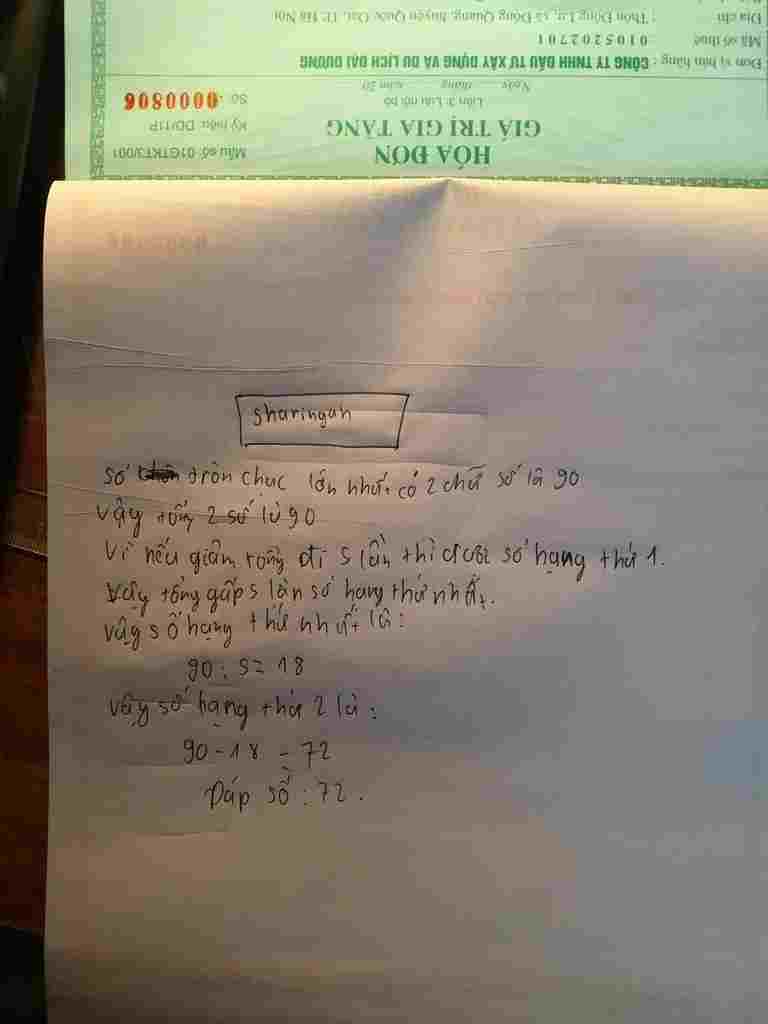 Địa chỉ : Thôn Đông Lư, xã Đông Quang, huyện Quốc Oai, TP. Hà Nội
Mã số thuế : 0105202701
Đơn vị bán hàng : CÔNG TY TNHH ĐẦU TƯ XÂY DỰNG VÀ DU LỊCH ĐẠI DƯƠNG
Ngày tháng năm 20
Liên 3: Lưu nội bộ
Số : 0000806
GIÁ TRỊ GIA TĂNG
Ký hiệu: DD/11P
HÓA ĐƠN
Mẫu số: 01GTKT3/001
sharingan
số tròn chục lớn nhất có 2 chữ số là 90
Vậy tổng 2 số là 90
Vì nếu giảm tổng đi 5 lần thì được số hạng thứ 1.
Vậy tổng gấp 5 lần số hạng thứ nhất.
Vậy số hạng thứ nhất là:
90 : 5 = 18
Vậy số hạng thứ 2 là:
90 - 18 = 72
Đáp số : 72.